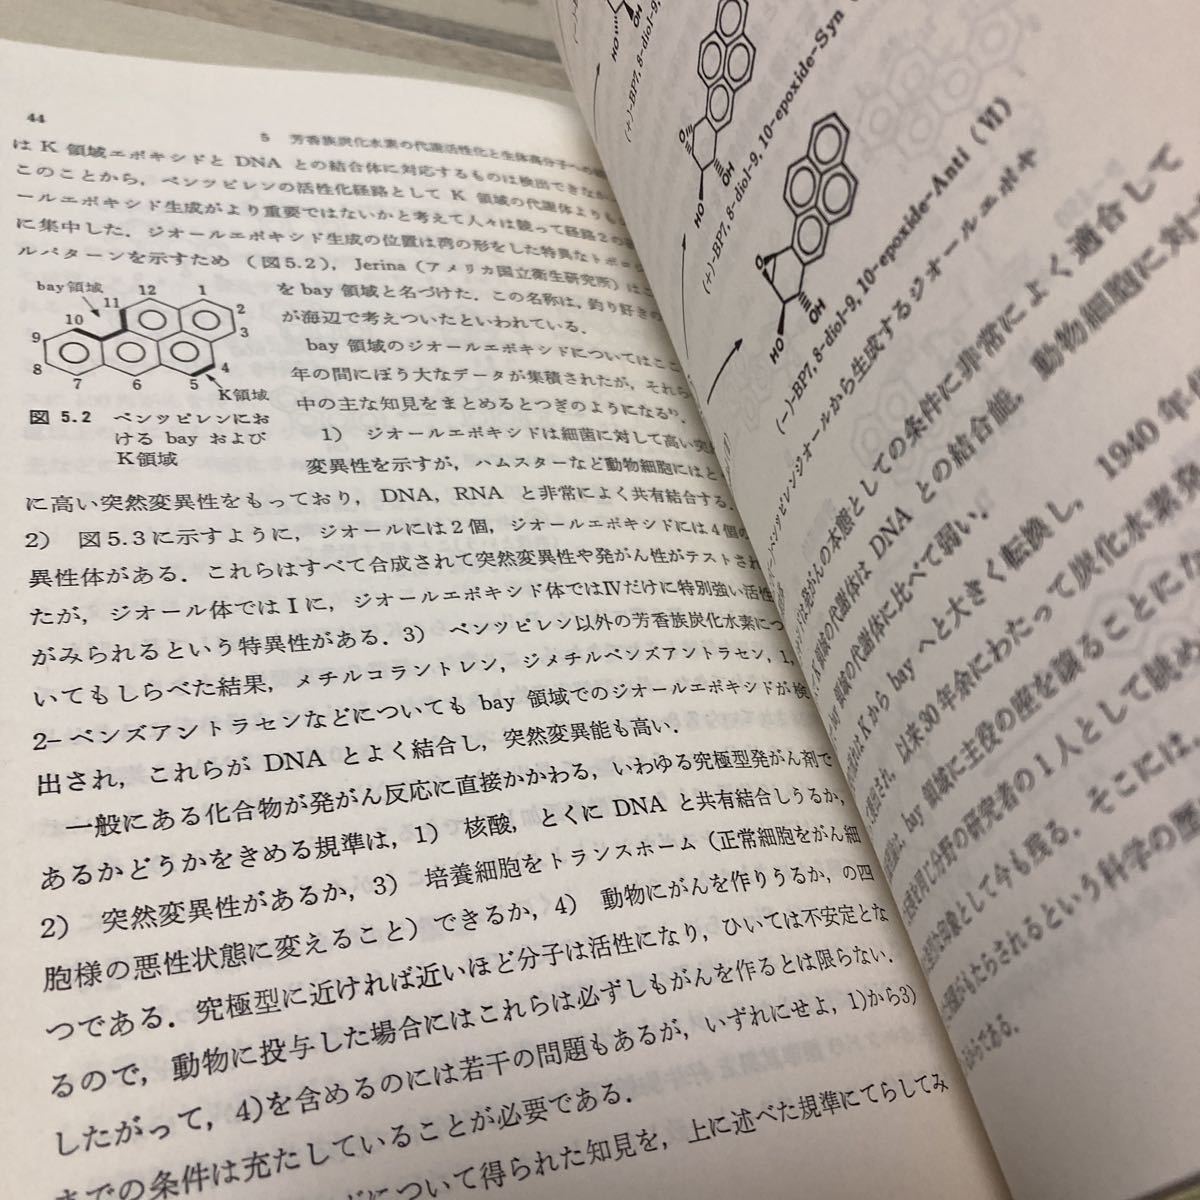 44
5 芳香族炭化水素の代謝活性化と生体高分子への
は K 領域エポキシドと DNA との結合体に対応するものは検出できなか
このことから,ベンツピレンの活性化経路として K 領域の代謝体よりも
ールエポキシド生成がより重要ではないかと考えて人々は競って経路2の
に集中した.ジオールエポキシド生成の位置は湾の形をした特異なトポロジ
ルパターンを示すため(図5.2),Jerina(アメリカ国立衛生研究所)はこ
を bay 領域と名づけた.この名称は,釣り好きの
が海辺で考えついたといわれている.
bay 領域のジオールエポキシドについてはここ
年の間にぼう大なデータが集積されたが,それら
中の主な知見をまとめるとつぎのようになるり.
1) ジオールエポキシドは細菌に対して高い突
変異性を示すが,ハムスターなど動物細胞にはと
bay領域
12
1
11
2
10
3
9
4
8
7
6
5
K領域
図 5.2 ベンツピレンにお
ける bay および
K領域
に高い突然変異性をもっており,DNA,RNA と非常によく共有結合する.
2) 図5.3に示すように,ジオールには2個,ジオールエポキシドには4個の
異性体がある.これらはすべて合成されて突然変異性や発がん性がテストされ
たが,ジオール体ではⅠに,ジオールエポキシド体ではⅣだけに特別強い活性
がみられるという特異性がある.3) ベンツピレン以外の芳香族炭化水素につ
いてもしらべた結果,メチルコラントレン,ジメチルベンズアントラセン,1,
2-ベンズアントラセンなどについても bay 領域でのジオールエポキシドが検
出され,これらが DNA とよく結合し,突然変異能も高い.
一般にある化合物が発がん反応に直接かかわる,いわゆる究極型発がん剤で
あるかどうかをきめる規準は,1) 核酸,とくに DNA と共有結合しうるか,
2) 突然変異性があるか,3) 培養細胞をトランスホーム(正常細胞をがん細
胞様の悪性状態に変えること)できるか,4) 動物にがんを作りうるか,の四
つである.究極型に近ければ近いほど分子は活性になり,ひいては不安定とな
るので,動物に投与した場合にはこれらは必ずしもがんを作るとは限らない.
したがって,4)を含めるのには若干の問題もあるが,いずれにせよ,1)から3)
までの条件は充たしていることが必要である.
について得られた知見を,上に述べた規準にてらしてみ
OH
HO
(+)-BP7, 8-diol-9, 10-epoxide-Syn
O
HO
OH
(+)-BP7, 8-diol-9, 10-epoxide-Anti (Ⅵ)
O
HO
OH
(-)-BP7, 8-diol-9, 10-epoxide-Anti (Ⅵ)
ベンツピレンジオールから生成するジオールエポキ
は発がんの本態としての条件に非常によく適合して
K領域の代謝体は DNA との結合能,動物細胞に対
領域の代謝体に比べて弱い.
Kから bay へと大きく転換し,1940 年
以来30年余にわたって炭化水素発
bay 領域に主役の座を譲ることにな
同じ分野の研究者の1人として眺め
印象として今も残る.そこには,
がもたらされるという科学の
である.